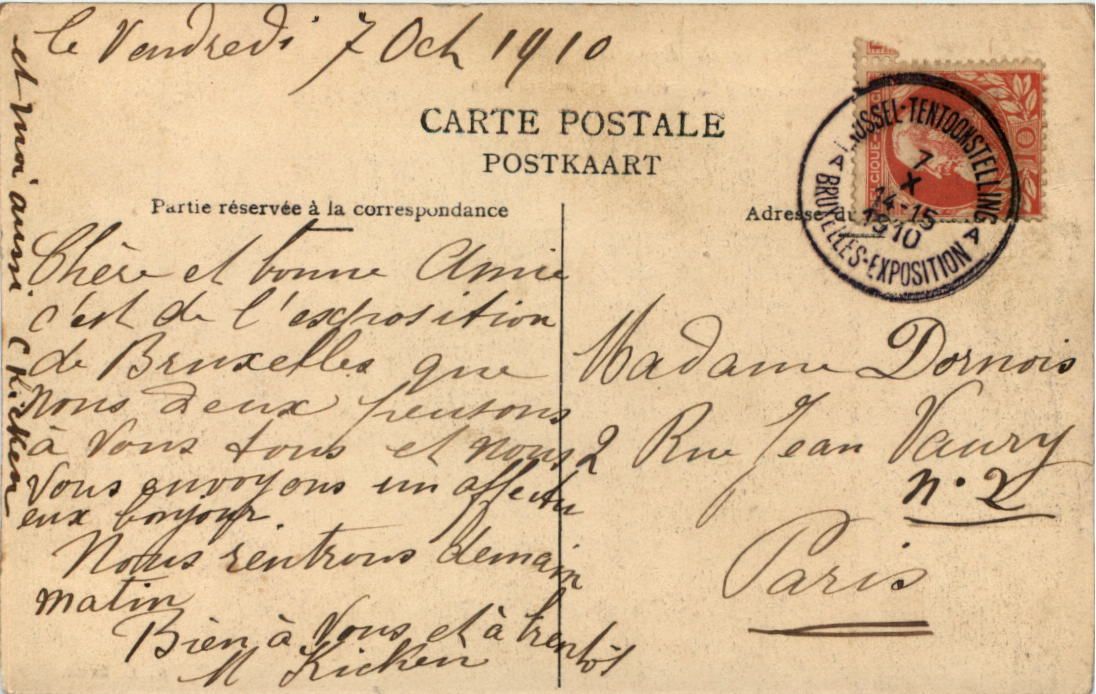 le Vendredi 7 Oct 1910
CARTE POSTALE
POSTKAART
Partie réservée à la correspondance
Adresse du
USSEL-TENTOONSTELLING
A BRUXELLES-EXPOSITION A
7
X
14-15
1910
10
Chère et bonne Amie
c'est de l'exposition
de Bruxelles que
nous deux pensons
à Vous tous et nous
Vous envoyons un affectu
eux bonjour
Nous rentrons demain
matin
Bien à Vous et à bientôt
M Kicken
et moi aussi C Kicken
Madame Dornois
2 Rue Jean Vaury
n. 2
Paris